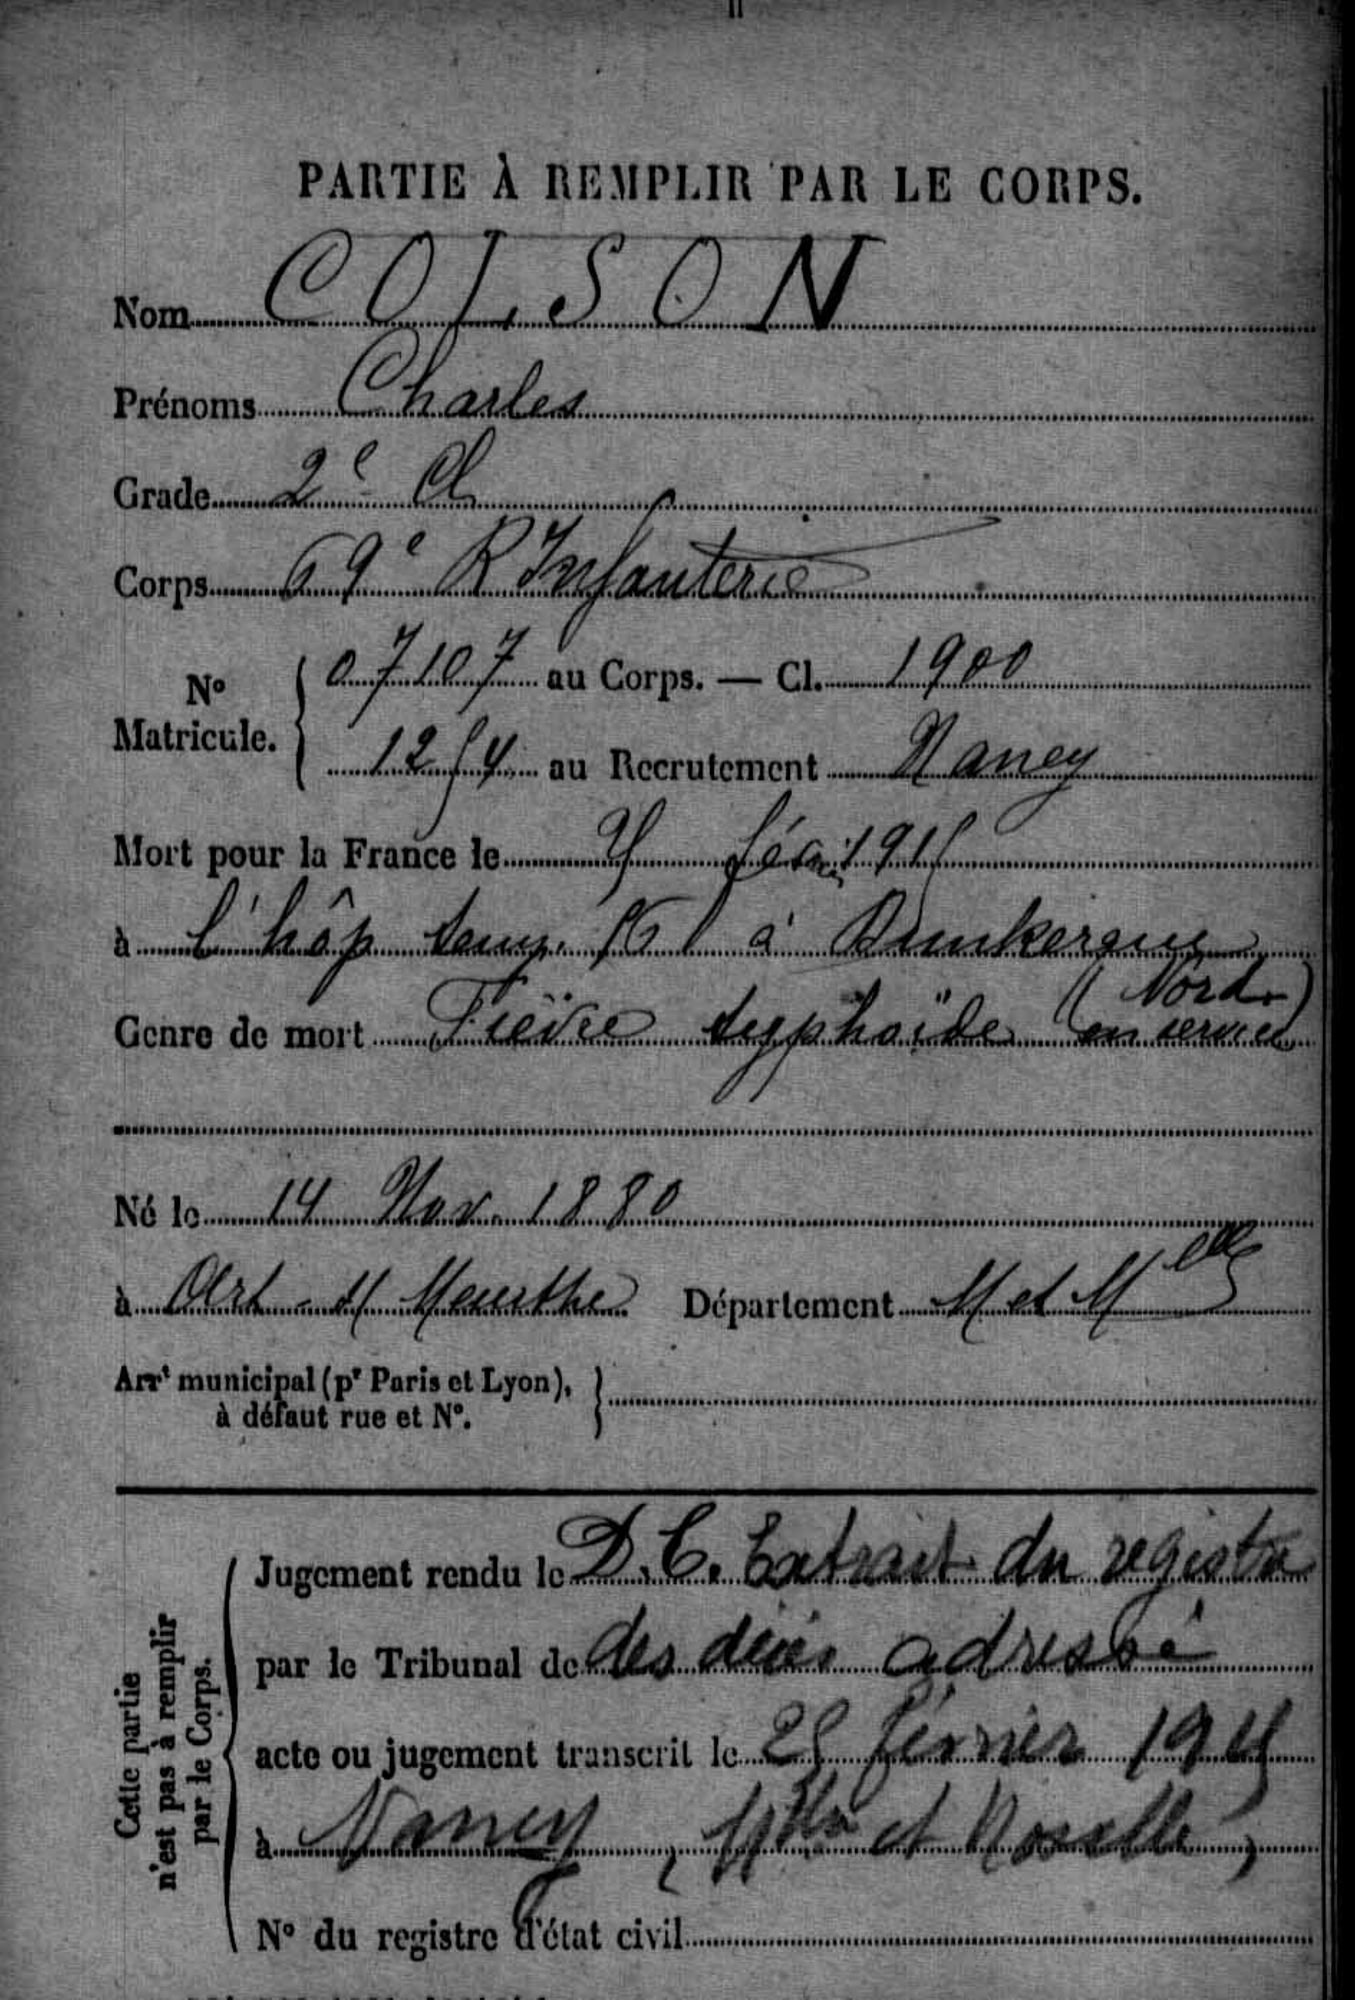 PARTIE À REMPLIR PAR LE CORPS.
Nom COLSON
Prénoms Charles
Grade 2e Cl
Corps 69e R Infanterie
No Matricule. 07107 au Corps. — Cl. 1900
1254 au Recrutement Nancy
Mort pour la France le février 1915
à l'hôp temp. à Dunkerque
(Nord)
Genre de mort Fièvre typhoïde en service
Né le 14 Nov. 1880
à Art-s/ Meurthe Département M et Melle
Arrt municipal (pr Paris et Lyon),
à défaut rue et No.
Cette partie
n'est pas à remplir
par le Corps.
Jugement rendu le D.C. Extrait du registre
par le Tribunal de des décès adressé
acte ou jugement transcrit le février 1915
à Nancy, Mthe et Moselle,
No du registre d'état civil